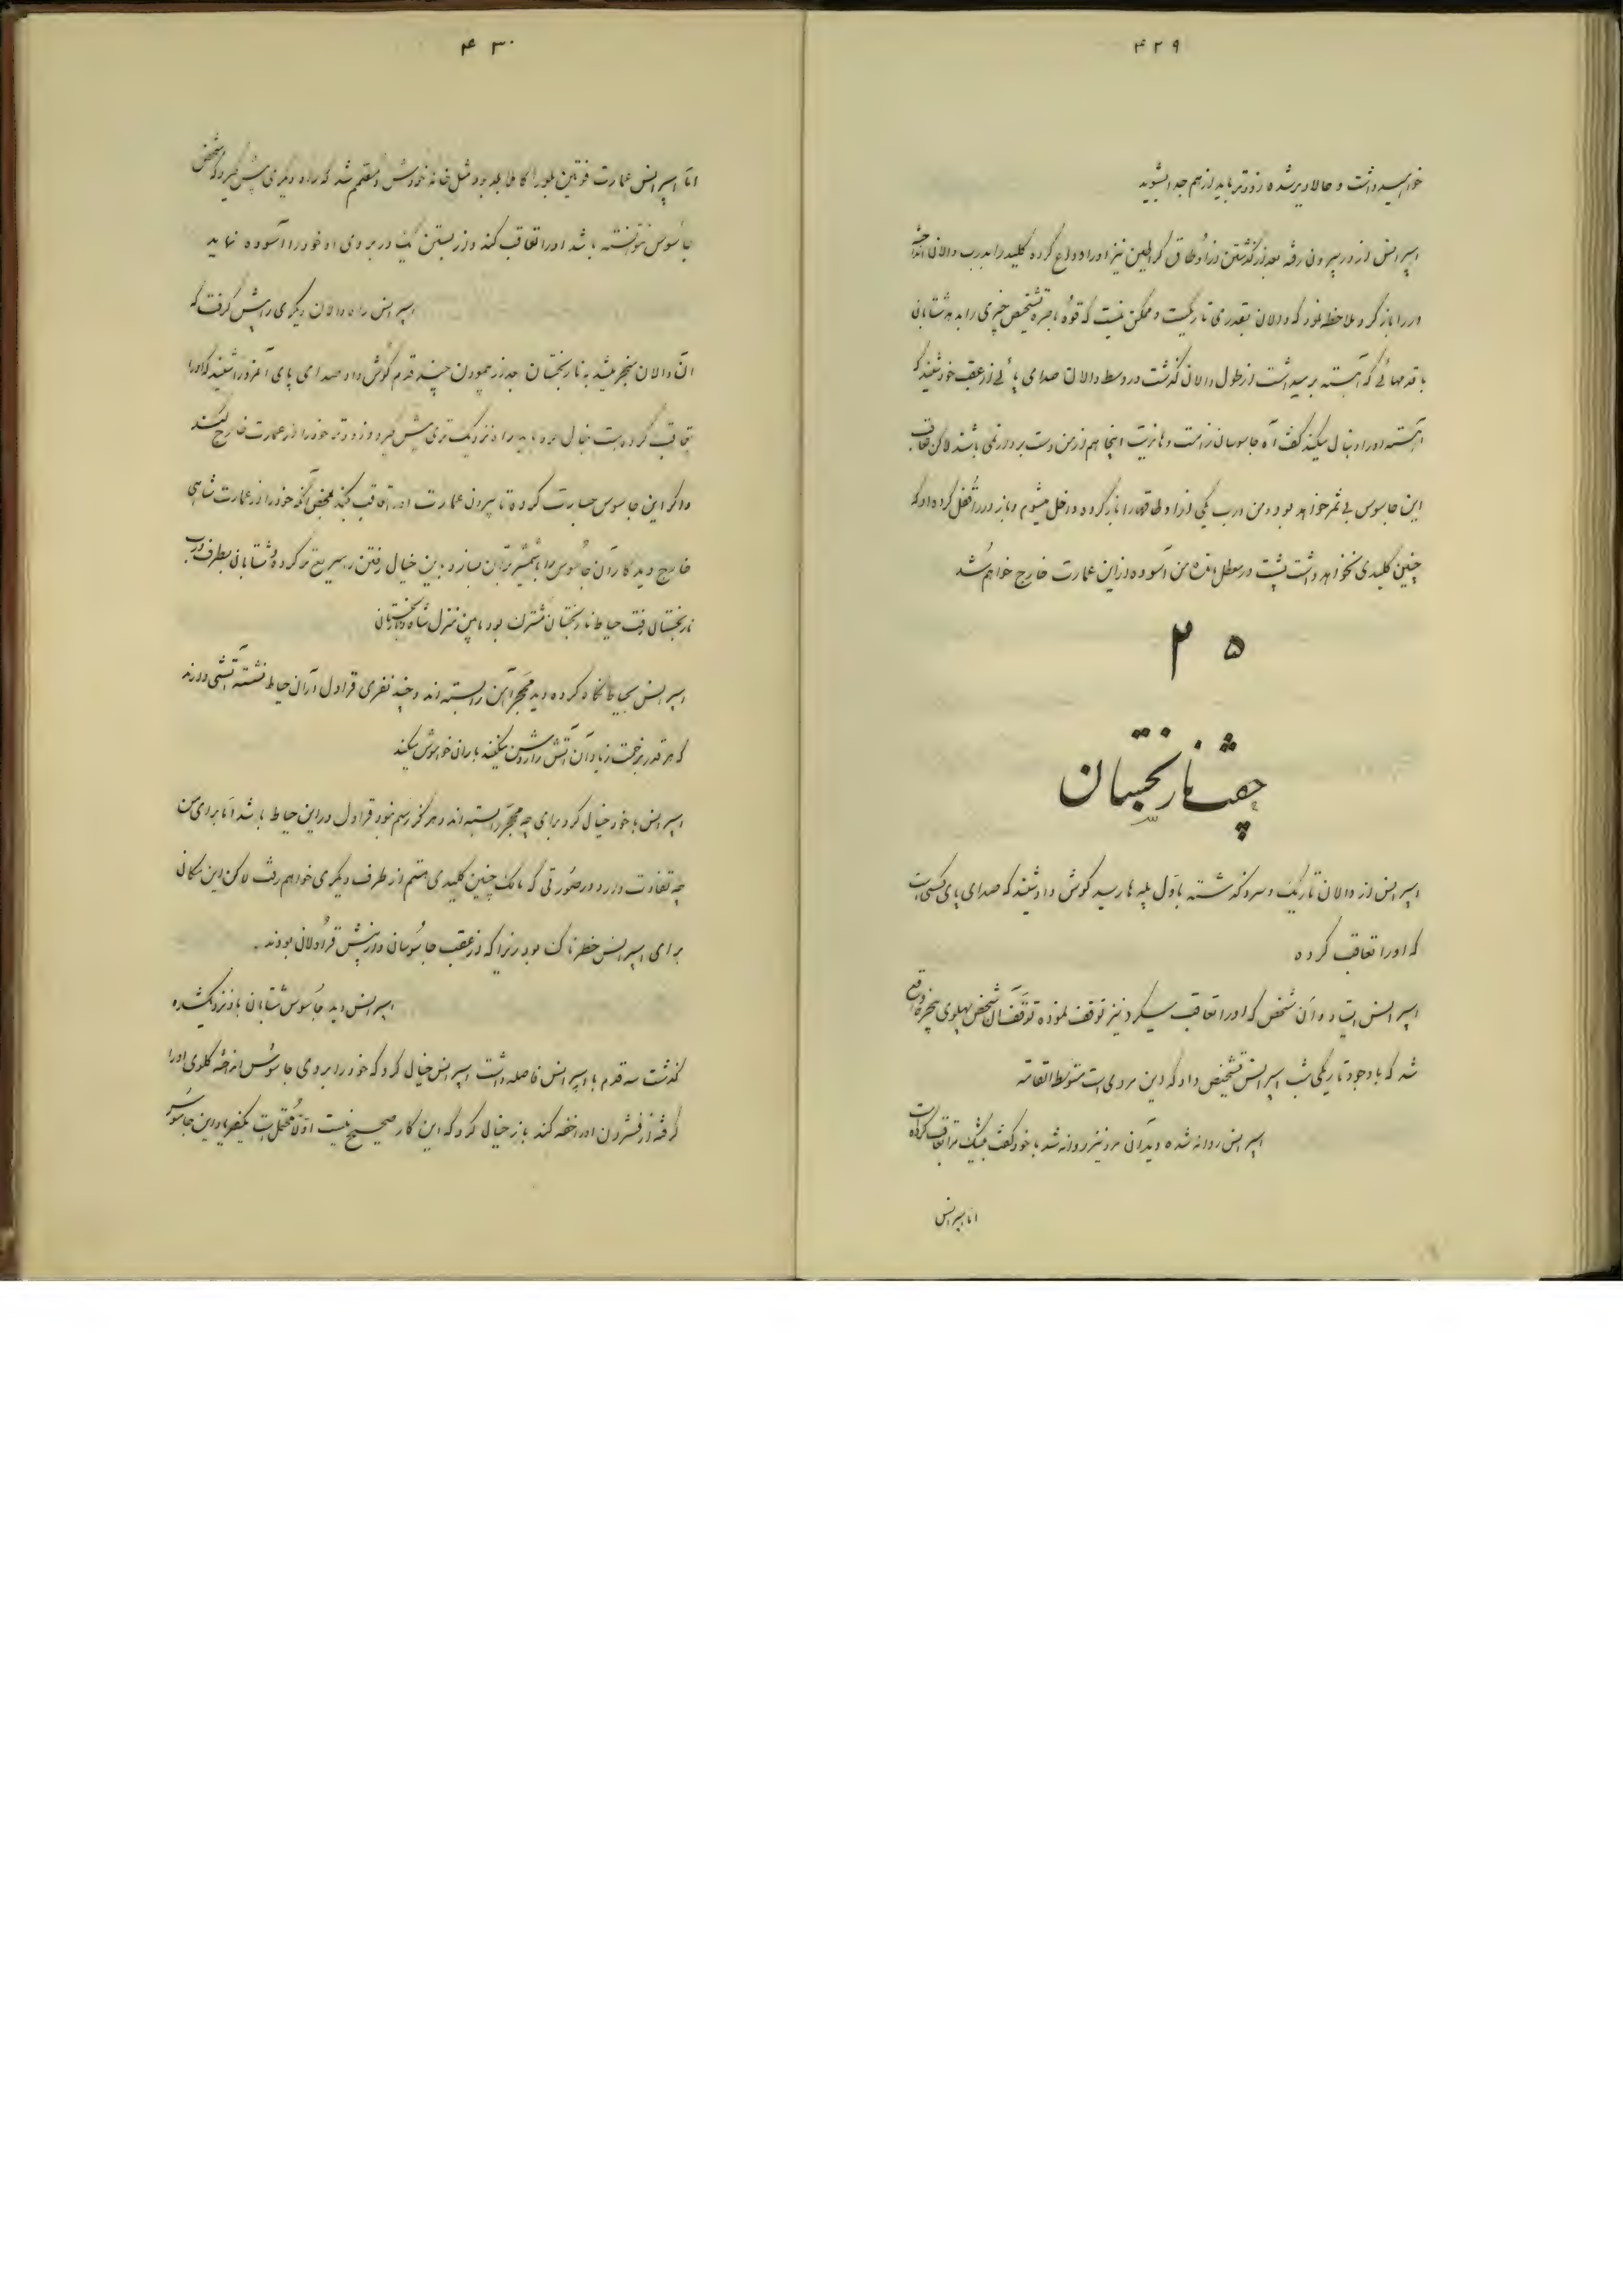 ۴۲۹
خواهید داشت و حالا دیر شده زودتر باید از هم جدا بشوید
اسپرانس از در بیرون رفته بعد از گذشتن از اوطاق کراطین نیز او را وداع کرده کلید را بدرب دالان انداخته
در را باز کرد ملاحظه نمود که دالان بقدری تاریکست و ممکن نیست که قوه باصره تشخیص چیزی را بدهد شتابان
با قدمهائی که آهسته برمیداشت از طول دالان گذشت در وسط دالان صدای پائی از عقب خود شنید که
آهسته او را دنبال میکند گفت آه جاسوسان اینجا هم از من دست بردار نمی باشند لاکن تعاقب
این جاسوس بی ثمر خواهد بود و من درب یکی از اوطاقها را باز کرده داخل میشوم و باز در را قفل کرده او که
چنین کلیدی نخواهد داشت پشت در معطل مانده من آسوده از این عمارت خارج خواهم شد
۲۵
چفت نارنجستان
اسپرانس از دالان تاریک و سرد گذشته باول پله ها رسید گوش داد شنید که صدای پای کسی است
که او را تعاقب کرده
اسپرانس ایستاده آن شخص که او را تعاقب میکرد نیز توقف نموده توقف آن شخص پهلوی پنجره واقع
شد که با وجود تاریکی شب اسپرانس تشخیص داد که این مردی است متوسط القامه
اسپرانس روانه شده دید آن مرد نیز روانه شد با خود گفت بیشک مرا تعاقب کرده است
اما اسپرانس
۴۳۰
اما اسپرانس عمارت فونتن بلو را کاملا بلد بود مثل خانه خودش مصمم شد که راه دیگری پیش گیرد که شخص
جاسوس نتوانسته باشد او را تعاقب کند و از بستن یک در بروی او خود را آسوده نماید
اسپرانس راه دالان دیگری را پیش گرفت که
آن دالان منجر میشد به نارنجستان بعد از پیمودن چند قدم گوش داد صدای پای آنمرد را شنید که او را
تعاقب کرده است خیال نمود باید راه نزدیک تری پیش گیرد و زودتر خود را از عمارت خارج کند
و اگر این جاسوس جسارت کرده تا بیرون عمارت او را تعاقب کند بمحض آنکه خود را از عمارت شاهی
خارج دید کار آن جاسوس را با شمشیر بران بسازد باین خیال رفتن را سریع تر کرده شتابان بطرف درب
نارنجستان رفت حیاط نارنجستان مشترک بود مابین منزل شاه و نارنجستان
اسپرانس بحیاط نگاه کرده دید محجر آهن را بسته اند و چند نفری قراول در آن حیاط نشسته آتشی دارند
که هر قدر بزحمت زیاد آن آتش را روشن میکنند باران خاموش میکند
اسپرانس با خود خیال کرد برای چه محجر را بسته اند و هرگز رسم نبود قراول در این حیاط باشد اما برای من
چه تفاوت دارد در صورتی که مالک چنین کلیدی هستم از طرف دیگری خواهم رفت لاکن این مکان
برای اسپرانس خطرناک بود زیرا که از عقب جاسوسان و از پیش قراولان بودند.
اسپرانس دید جاسوس شتابان باو نزدیک شده
گذشت سه قدم با اسپرانس فاصله داشت اسپرانس خیال کرد که خود را بروی جاسوس انداخته گلوی او را
گرفته از فشردن او را خفه کند باز خیال کرد که این کار صحیح نیست اولا محتمل است یکنفر باد این جاسوس